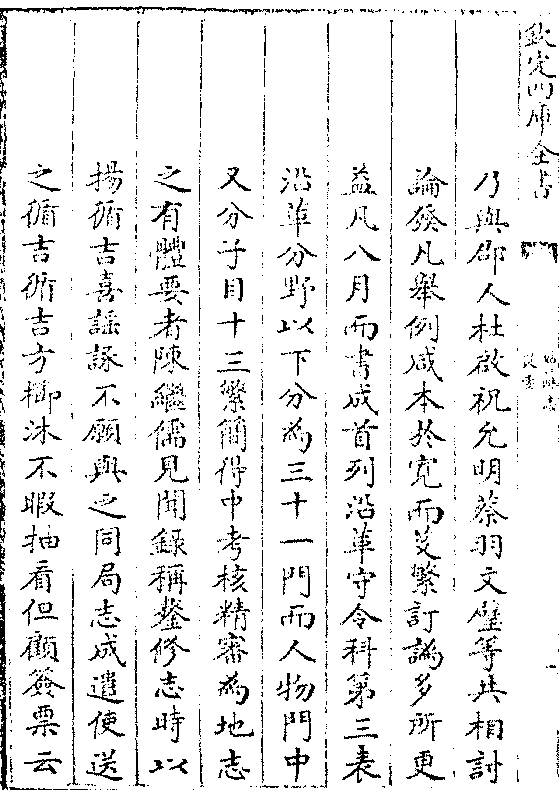 欽定四庫全書
乃與郡人杜啟祝允明蔡羽文璧等共相討
論發凡舉例咸本於寛而芟繁訂譌多所更
益凡八月而書成首列沿革守令科第三表
沿革分野以下分為三十一門而人物門中
又分子目十三繁簡得中考核精審為地志
之有體要者陳繼儒見聞錄稱鏊修志時以
揚循吉喜謡諑不願與之同局志成遣使送
之循吉循吉方櫛沐不暇抽看但顧簽票云